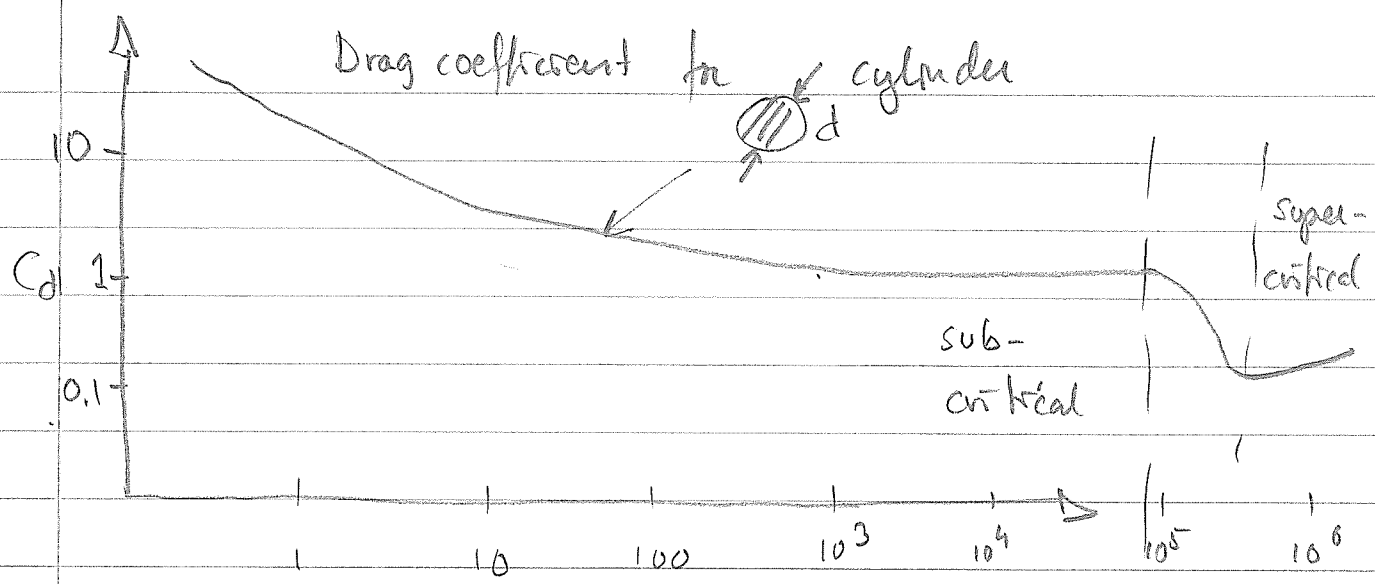 Drag coefficient for cylinder
d
10
Cd 1
0.1
sub-
critical
super-
critical
1 10 100 10³ 10⁴ 10⁵ 10⁶